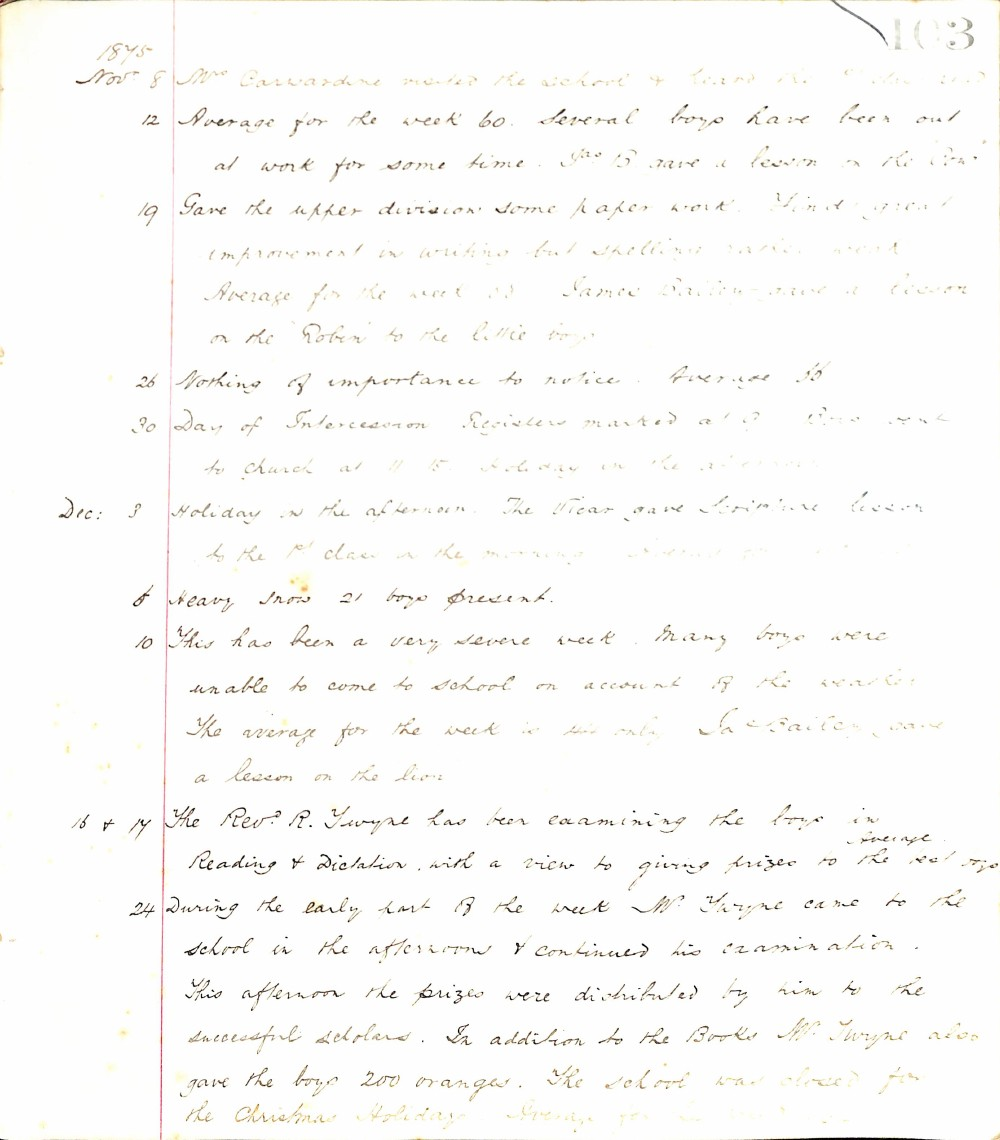 103
1875
Nov. 8 Mrs Carwardine visited the school & heard the read
12 Average for the week 60. Several boys have been out
at work for some time. Jas B gave a lesson on the Cow
19 Gave the upper division some paper work. Find great
improvement in writing but spelling rather weak
Average for the week James Bailey gave a lesson
on the Robin to the little boys
26 Nothing of importance to notice. Average 56
30 Day of Intercession Registers marked at 9 Boys went
to church at 11.15. Holiday in the afternoon
Dec: 3 Holiday in the afternoon. The Vicar gave Scripture lesson
to the 1st class in the morning Average
6 Heavy snow 21 boys present.
10 This has been a very severe week. Many boys were
unable to come to school on account of the weather
The average for the week is only Jas Bailey gave
a lesson on the lion
16 & 17 The Revd R. Twyne has been examining the boys in
Average
Reading & Dictation, with a view to giving prizes to the best boys
24 During the early part of the week Mr Twyne came to the
school in the afternoons & continued his examination.
This afternoon the prizes were distributed by him to the
successful scholars. In addition to the Books Mr Twyne also
gave the boys 200 oranges. The school was closed for
the Christmas Holidays Average for the